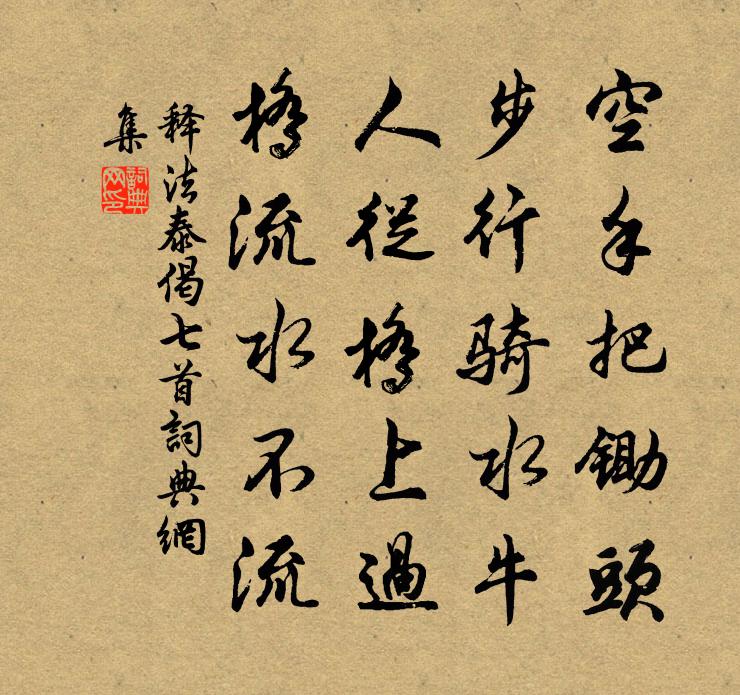 空手把鋤頭
步行騎水牛
人從橋上過
橋流水不流
释法泰偈七首詞典網
集
詞典
网印